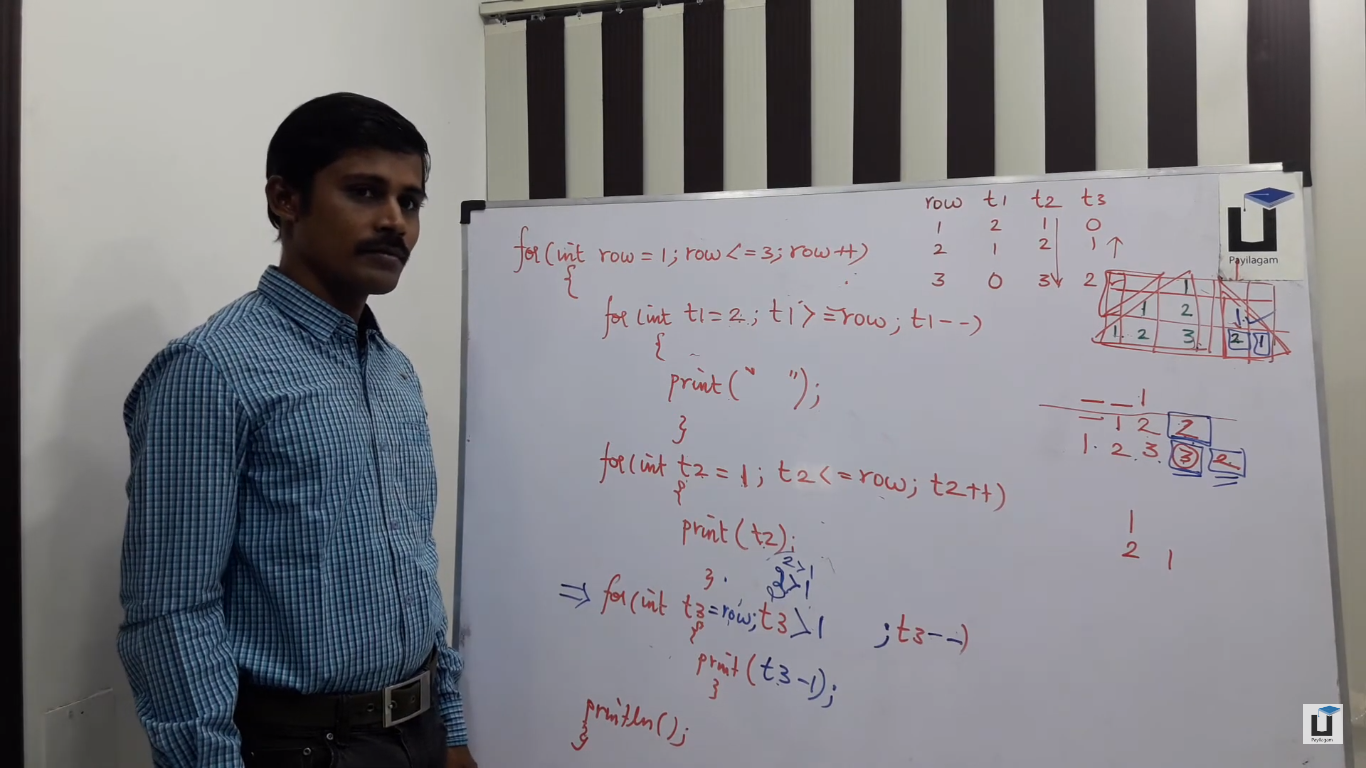 for(int row=1; row<=3; row++)
{
for(int t1=2; t1>=row; t1--)
{
print(" ");
}
for(int t2=1; t2<=row; t2++)
{
print(t2);
}
2>1
3>1
⇒ for(int t3=row; t3>1 ;t3--)
{
print(t3-1);
}
println();
}
row t1 t2 t3
1 2 1 0
2 1 2 1 ↑
3 0 3 2
Payilagam
1
1 2 1
1 2 3 2 1
_ _ 1
_ 1 2 2
1 2 3 3 2
1
2 1
Payilagam